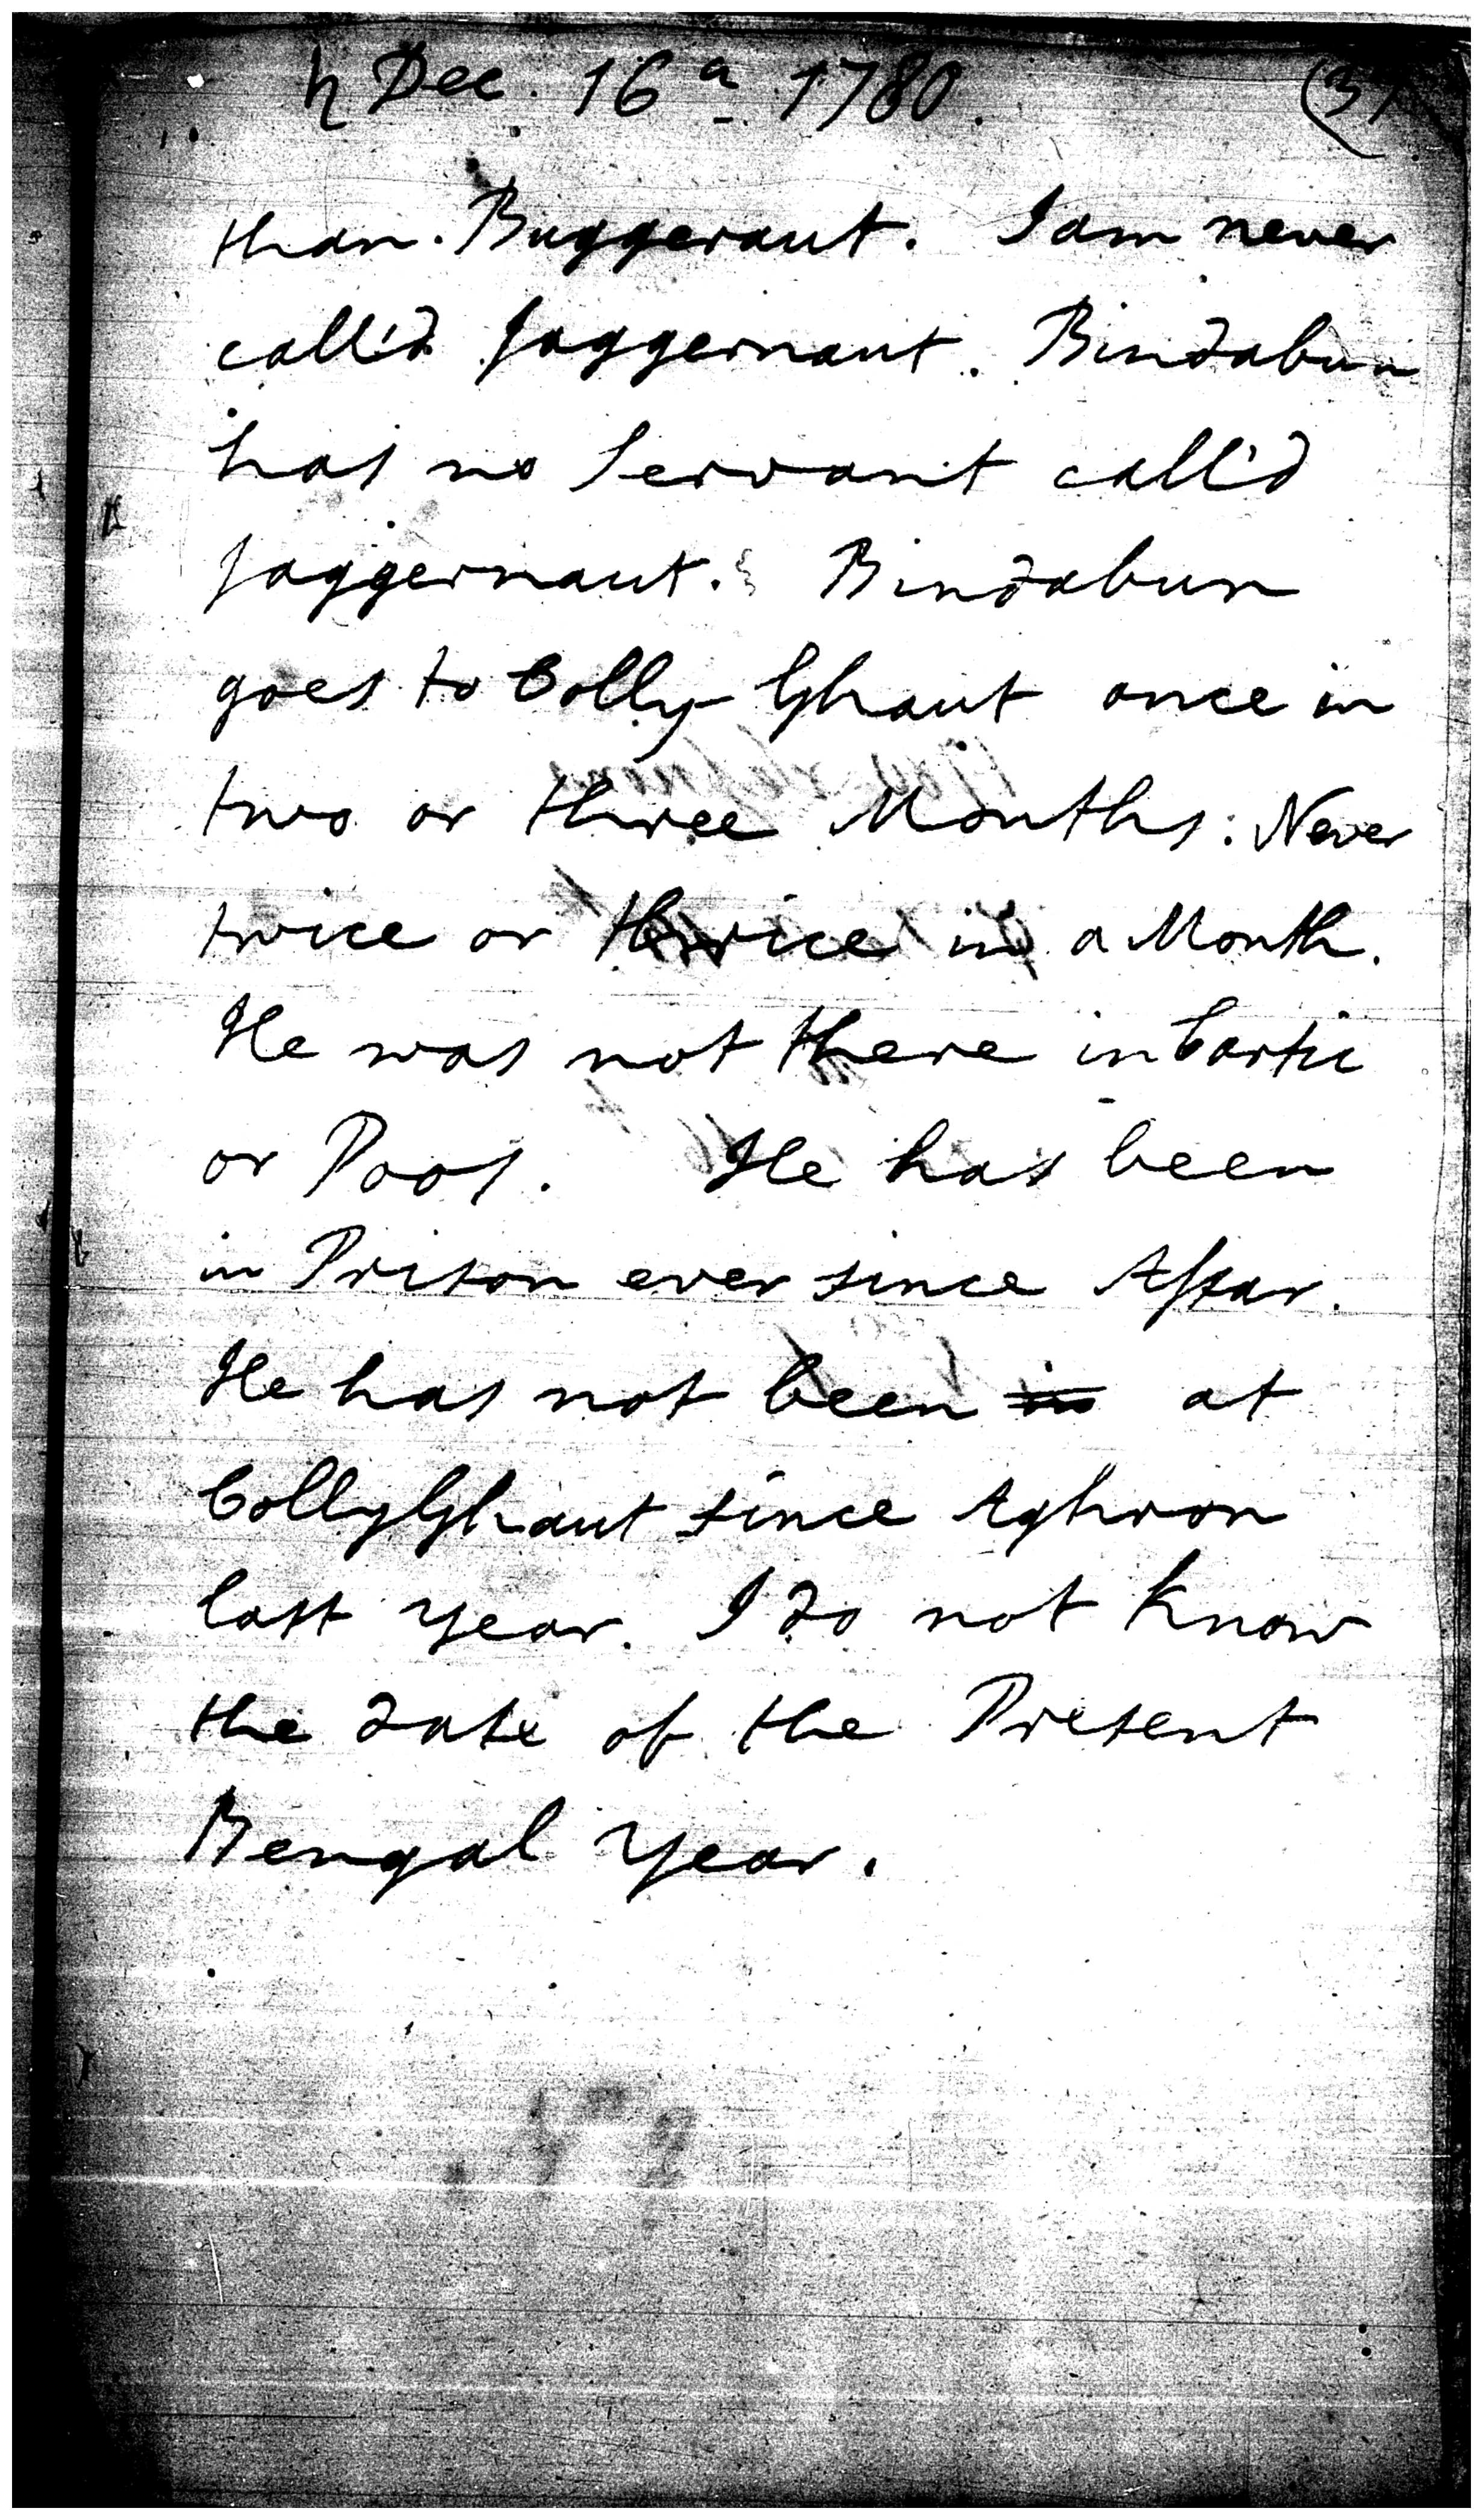 ♄ Dec. 16ᵃ 1780.
than. Buggeraut. I am never
call'd Jaggernaut. Bindabun
has no Servant call'd
Jaggernaut. Bindabun
goes to Colly Ghaut once in
two or three Months: Never
twice or thrice in a Month.
He was not there in Cartic
or Poos. He has been
in Prison ever since Assar.
He has not been in at
CollyGhaut since Aghron
last year. I do not know
the date of the Present
Bengal Year.